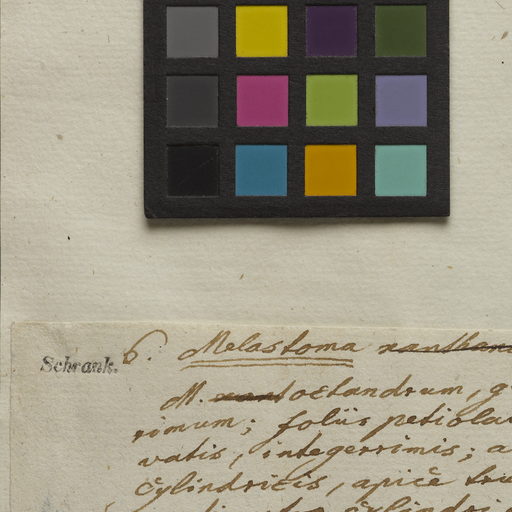 Schrank.
6. Melastoma xanthan
M. octandrum, g
rimum; foliis petiola
vatis, integerrimis; a
Cylindricis, apice tru